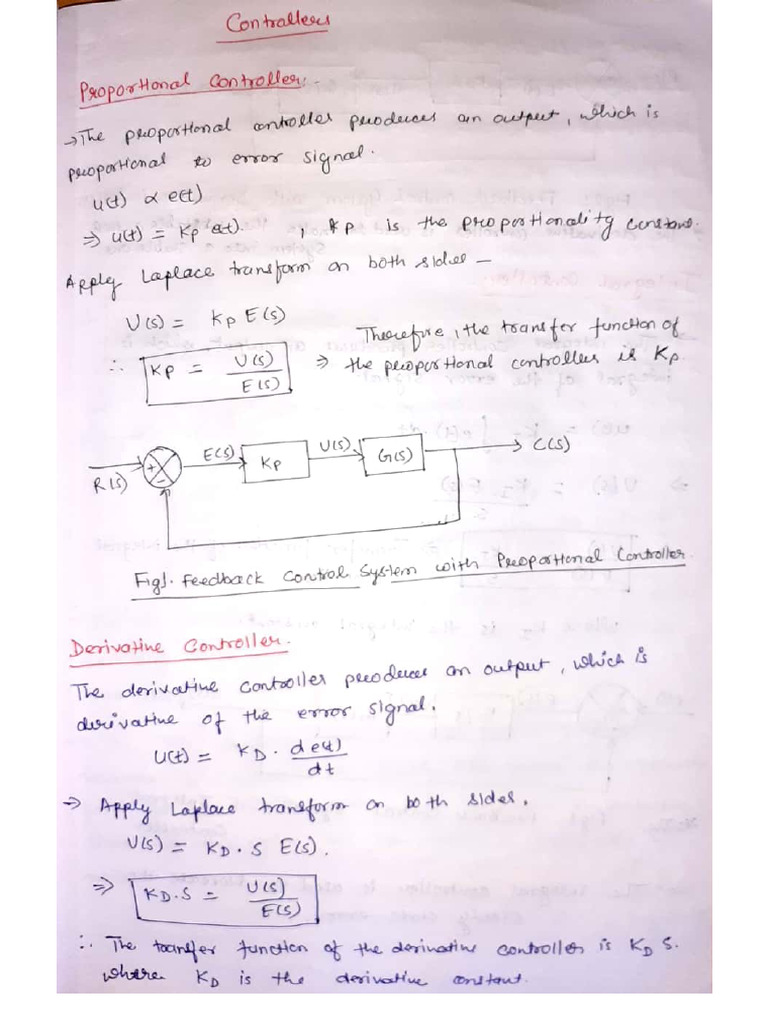 Controllers
Proportional Controller:-
→ The proportional controller produces an output, which is
proportional to error signal.
u(t) ∝ e(t)
⇒ u(t) = Kp e(t). , Kp is the proportionality constant.
Apply Laplace transform on both sides —
U(s) = Kp E(s)
∴ Kp = U(s)/E(s) ⇒ Therefore, the transfer function of
the proportional controller is Kp
R(s) + - E(s) Kp U(s) G(s) → C(s)
Fig1. Feedback Control System with Proportional Controller.
Derivative Controller.
The derivative controller produces an output, which is
derivative of the error signal.
u(t) = KD . d e(t)/dt
→ Apply Laplace transform on both sides.
U(s) = KD . S E(s).
⇒ KD.S = U(s)/E(s)
∴ The transfer function of the derivative controller is KD S.
where KD is the derivative constant.